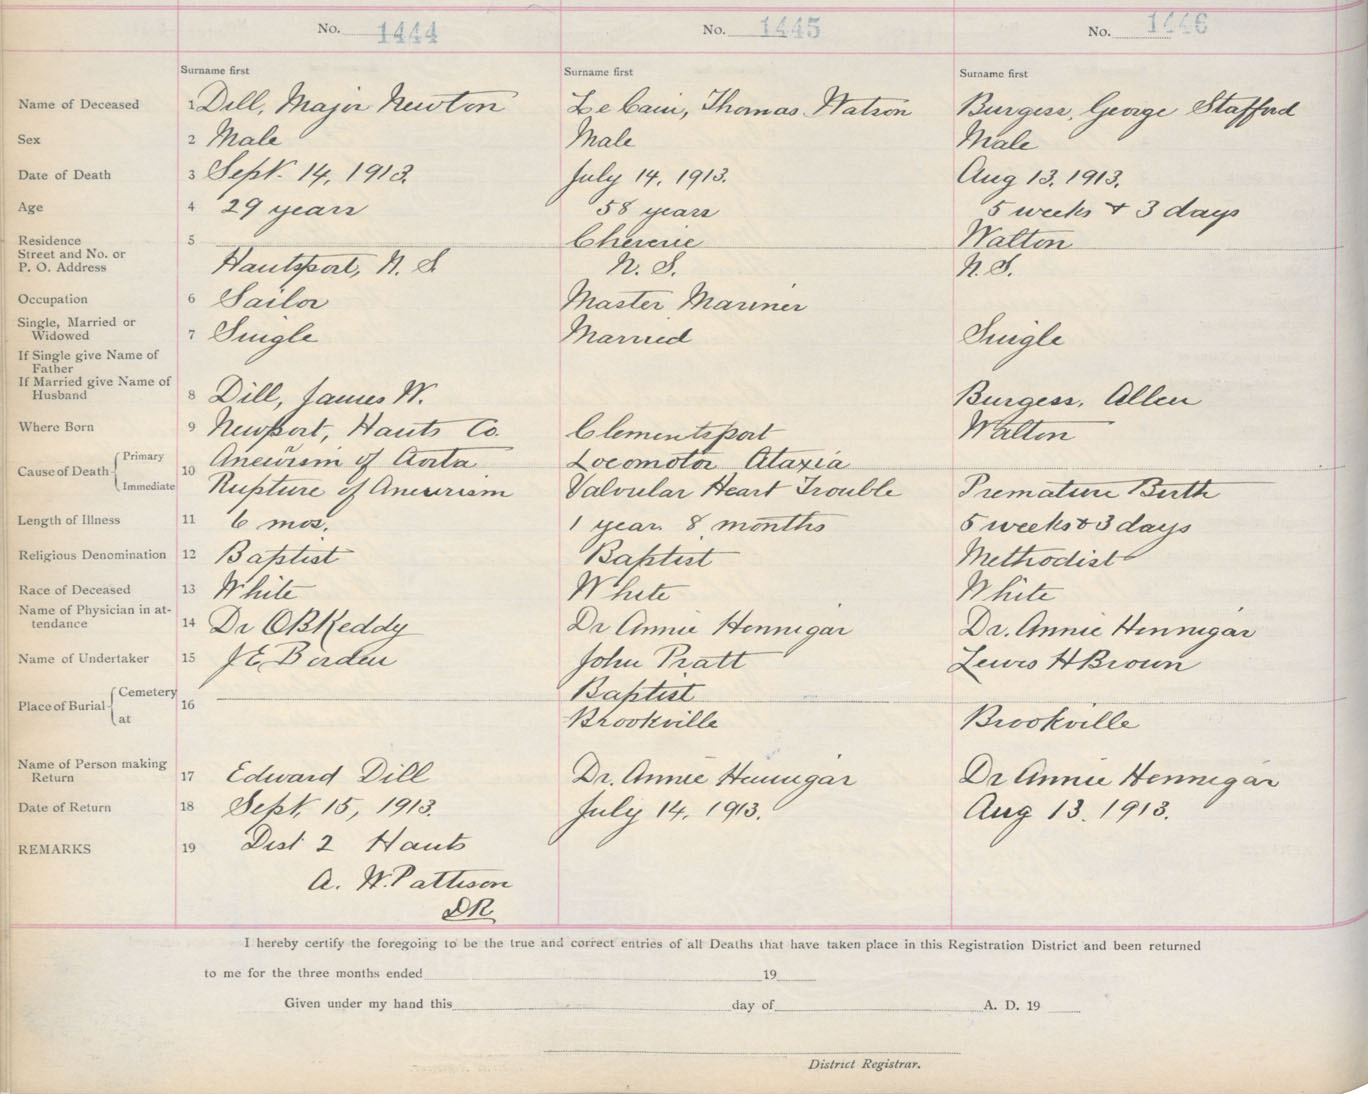 No. 1444 No. 1445 No. 1446
Surname first Surname first Surname first
Name of Deceased 1 Dill, Major Newton Le Cain, Thomas Watson Burgess, George Stafford
Sex 2 Male Male Male
Date of Death 3 Sept. 14, 1913. July 14, 1913. Aug 13, 1913.
Age 4 29 years 58 years 5 weeks & 3 days
Residence 5 Cheverie Walton
Street and No. or
P. O. Address Hantsport, N. S. N. S. N. S.
Occupation 6 Sailor Master Mariner
Single, Married or
Widowed 7 Single Married Single
If Single give Name of
Father
If Married give Name of
Husband 8 Dill, James W. Burgess, Allen
Where Born 9 Newport, Hants Co. Clementsport Walton
Cause of Death 10 Primary Aneurism of Aorta Locomotor Ataxia
Immediate Rupture of Aneurism Valvular Heart Trouble Premature Birth
Length of Illness 11 6 mos. 1 year 8 months 5 weeks & 3 days
Religious Denomination 12 Baptist Baptist Methodist
Race of Deceased 13 White White White
Name of Physician in at-
tendance 14 Dr O B Keddy Dr Annie Hennigar Dr. Annie Hennigar
Name of Undertaker 15 J E Borden John Pratt Lewis H Brown
Place of Burial 16 Cemetery Baptist
at Brookville Brookville
Name of Person making
Return 17 Edward Dill Dr. Annie Hennigar Dr Annie Hennigar
Date of Return 18 Sept. 15, 1913. July 14, 1913. Aug 13. 1913.
REMARKS 19 Dist 2 Hants
A. W. Pattison
DR
I hereby certify the foregoing to be the true and correct entries of all Deaths that have taken place in this Registration District and been returned
to me for the three months ended 19
Given under my hand this day of A. D. 19
District Registrar.